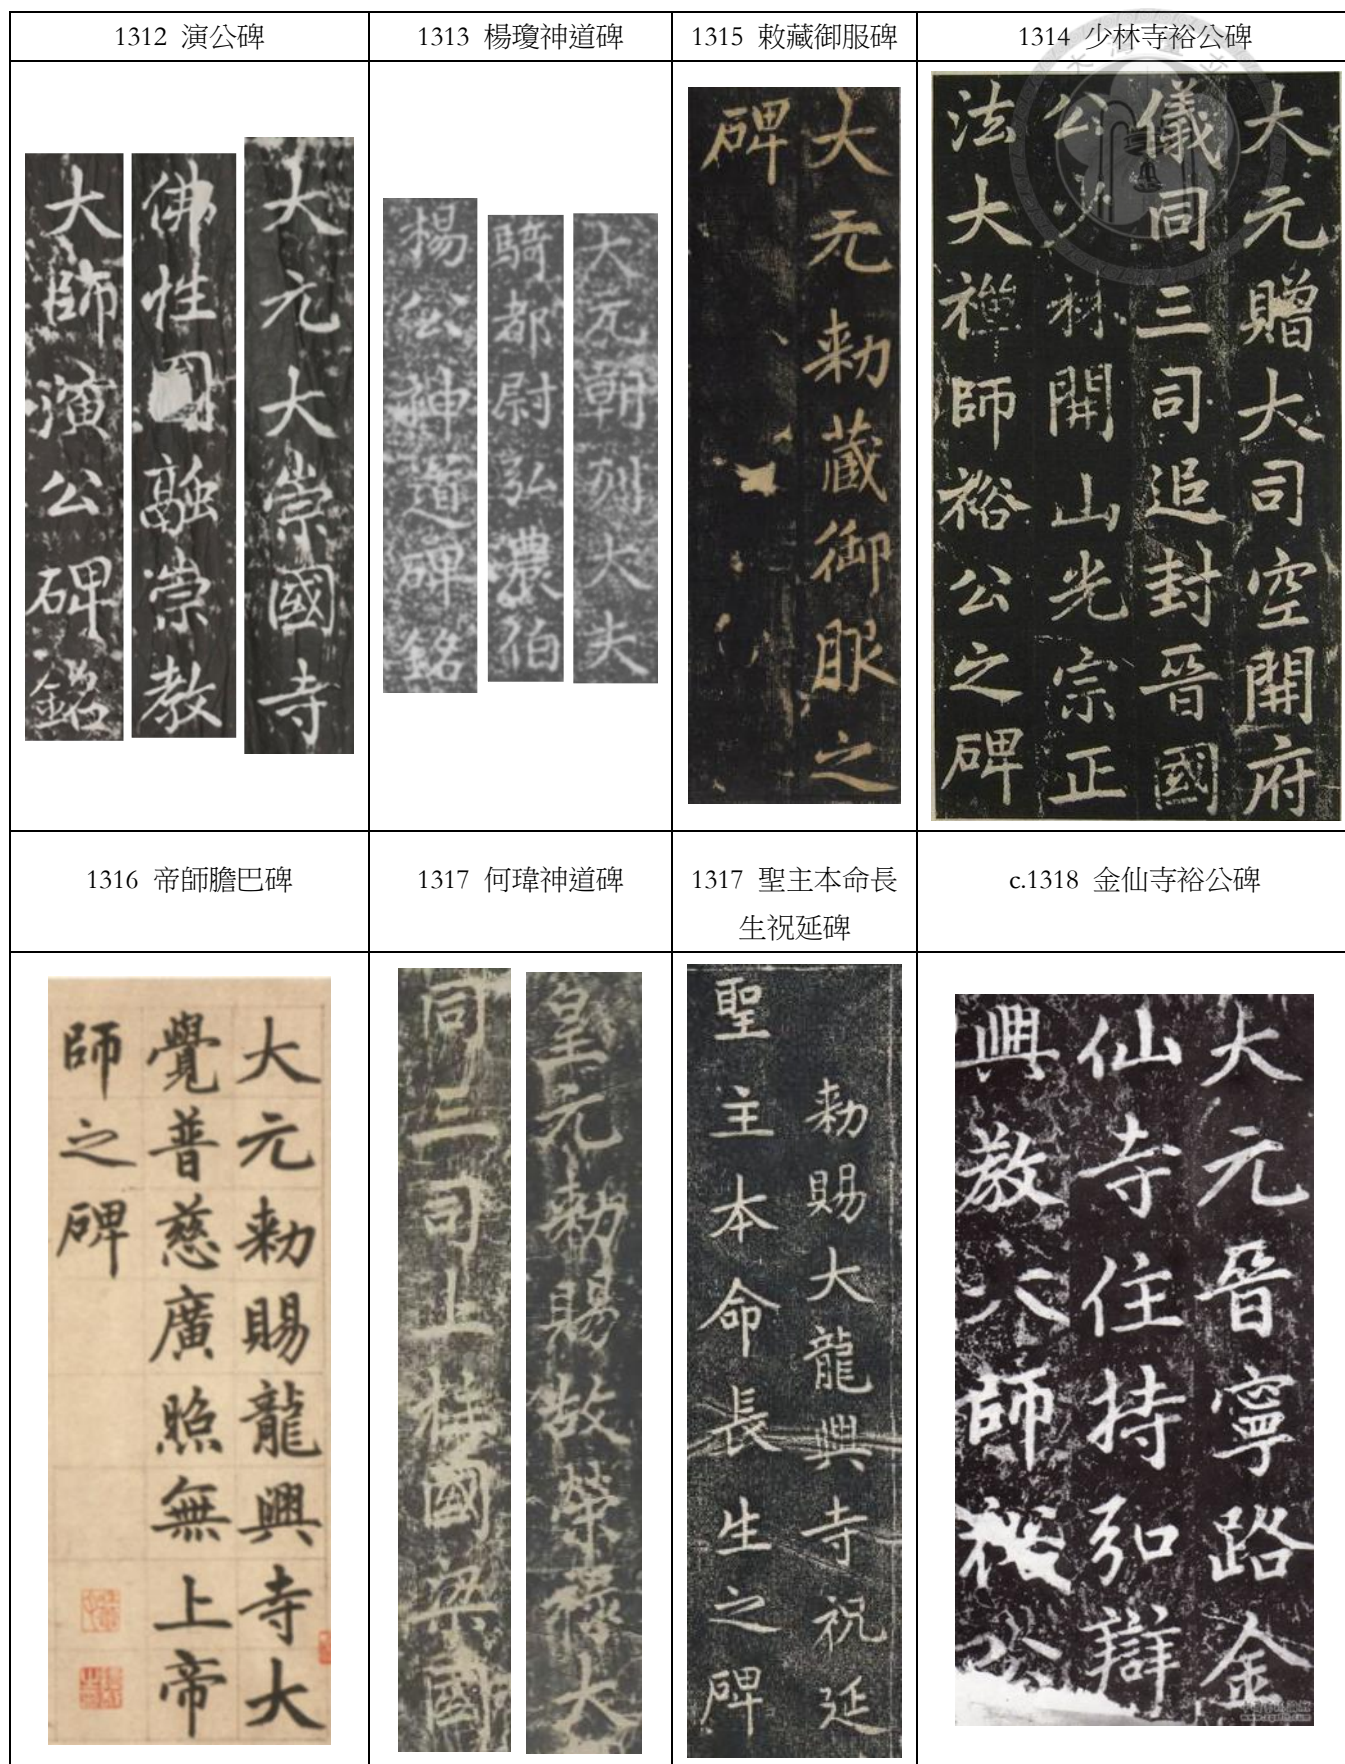 1312 演公碑
1313 楊瓊神道碑
1315 敕藏御服碑
1314 少林寺裕公碑
大元大崇國寺
佛性融崇教
大師演公碑銘
大元朝列大夫
騎都尉弘農伯
楊公神道碑銘
大元勑藏御服之
碑
大元贈大司空開府
儀同三司追封晉國
公少林開山光宗正
法大禪師裕公之碑
1316 帝師膽巴碑
1317 何瑋神道碑
1317 聖主本命長
生祝延碑
c.1318 金仙寺裕公碑
大元勑賜龍興寺大
覺普慈廣照無上帝
師之碑
皇元勑賜故榮祿大
同三司上柱國梁國
勑賜大龍興寺祝延
聖主本命長生之碑
大元晉寧路金
仙寺住持弘辯
興教大師裕公